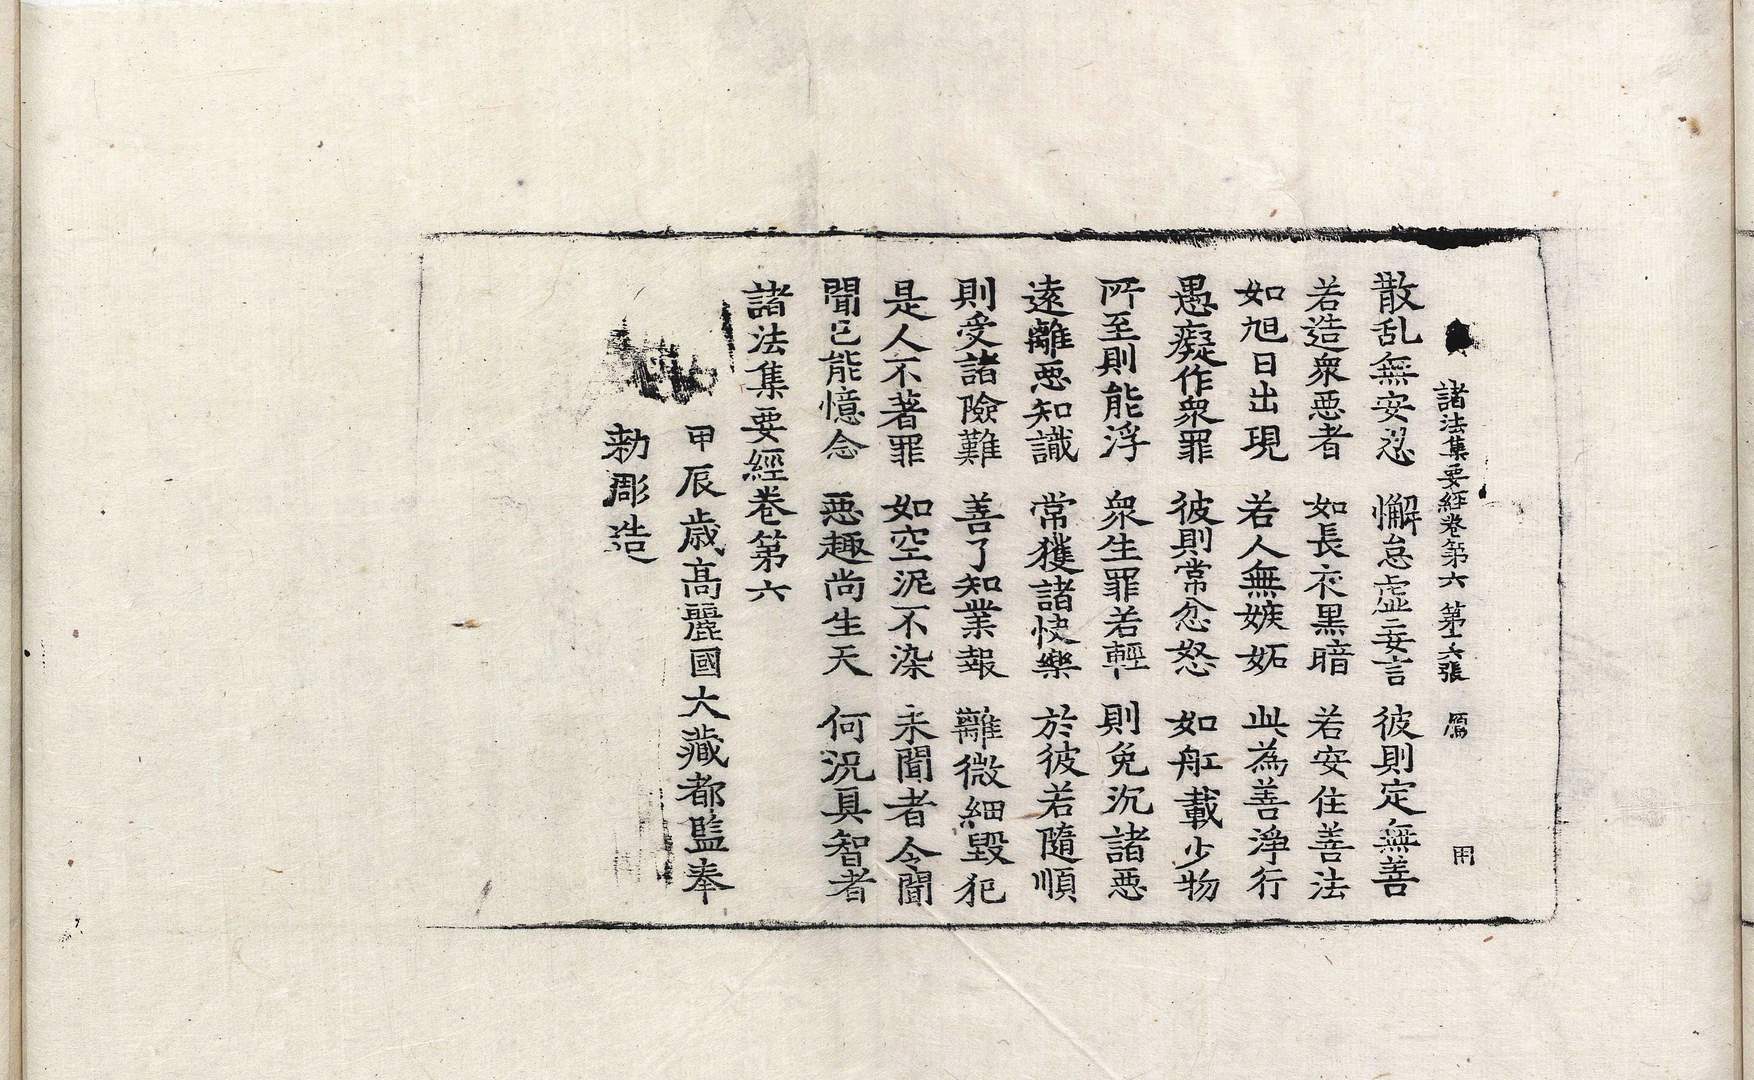 諸法集要經卷第六　第十六張　鴈
用
散乱無安忍　懈怠虛妄言　彼則定無善
若造衆惡者　如長衣黑暗　若安住善法
如旭日出現　若人無嫉妬　此為善淨行
愚癡作衆罪　彼則常忿怒　如舡載少物
所至則能浮　衆生罪若輕　則免沉諸惡
遠離惡知識　常獲諸快樂　於彼若隨順
則受諸險難　善了知業報　離微細毀犯
是人不著罪　如空泥不染　未聞者令聞
聞已能憶念　惡趣尚生天　何況具智者
諸法集要經卷第六
甲辰歲高麗國大藏都監奉
勑彫造